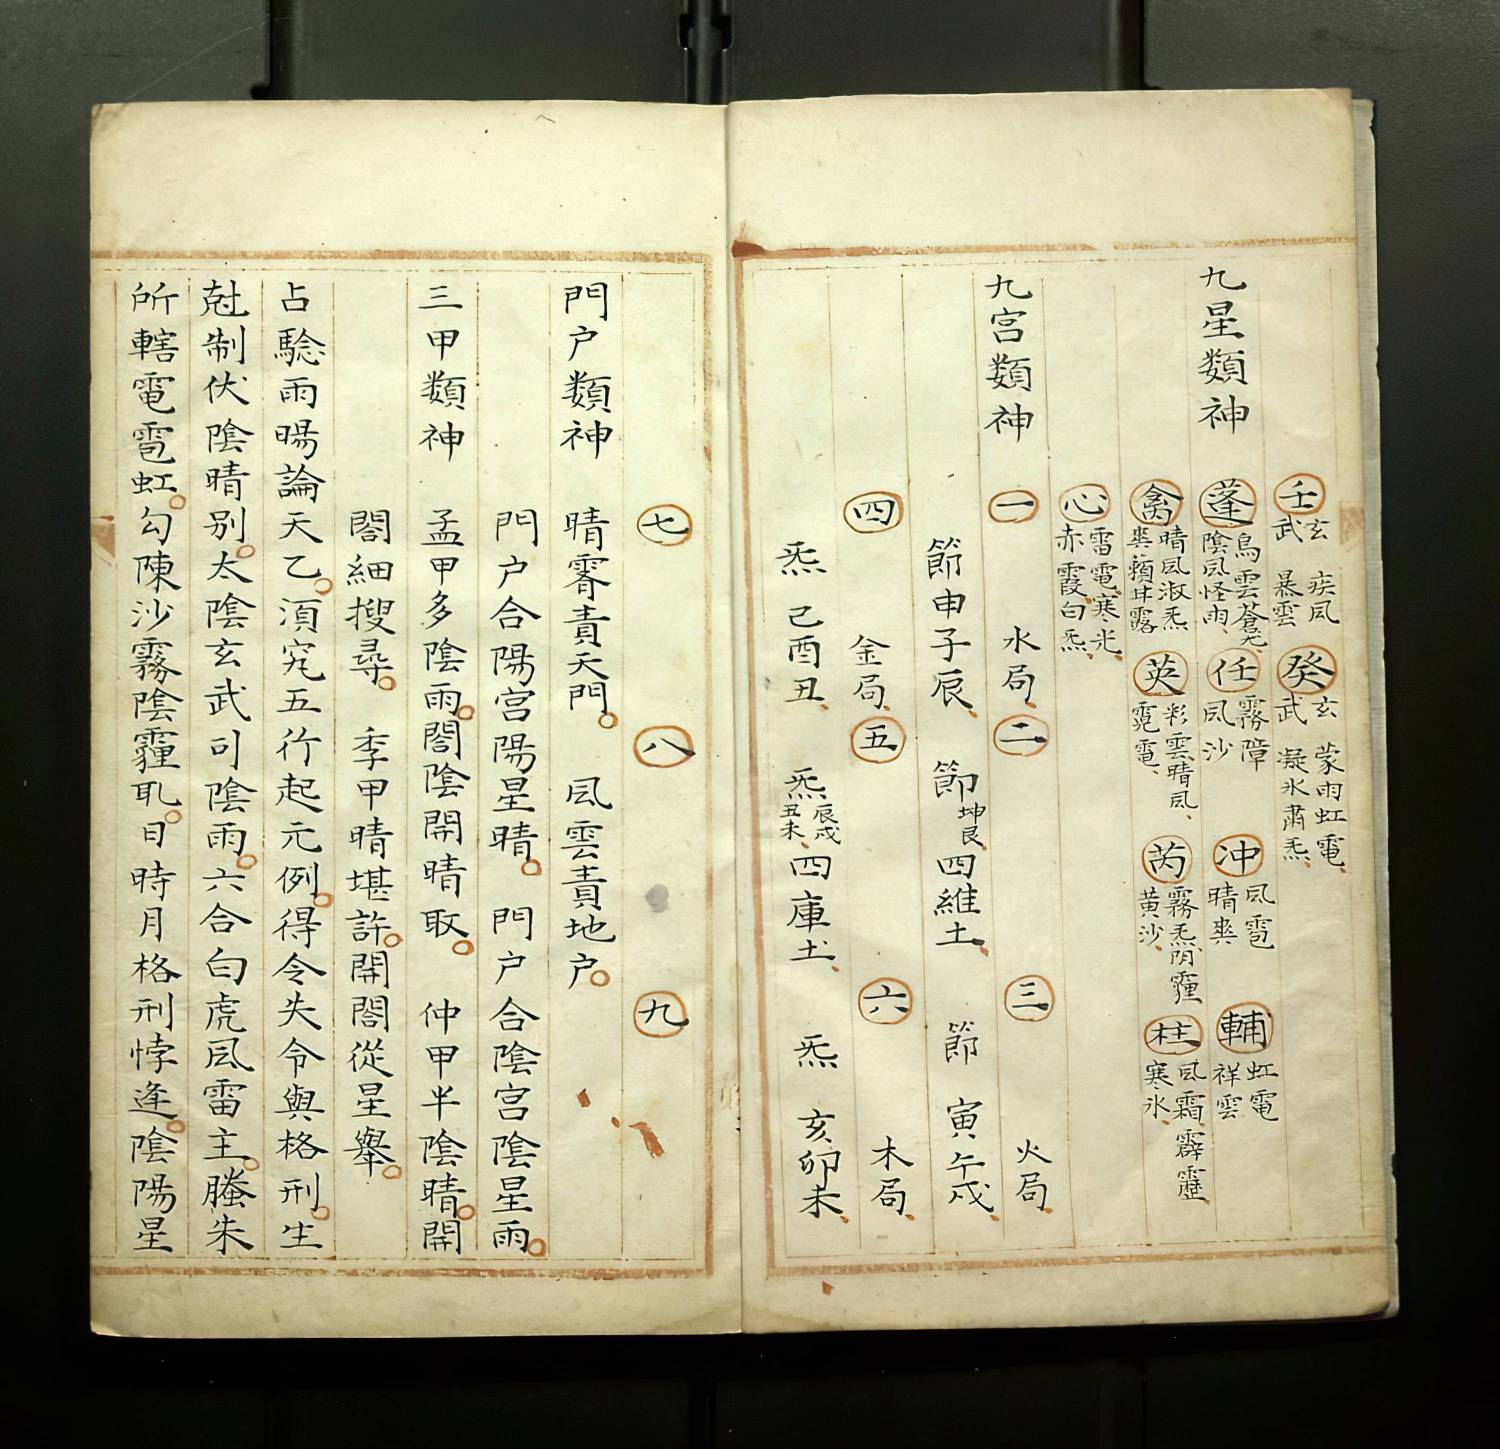 壬 玄武 疾風暴雲 癸 玄武 蒙雨虹電凝氷肅炁
九星類神 蓬 烏雲蒼 陰風怪雨 任 霧障風沙 冲 風雹晴 輔 虹電祥雲
禽 晴風淑炁 露 英 彩雲晴風霓電 芮 霧炁陰霾黄沙 柱 風霜霹靂寒氷
心 雷電寒光赤霞白炁
九宮類神 一 水局 二 三 火局
節申子辰 節坤艮四維土 節 寅午戌
四 金局 五 六 木局
炁 己酉丑 炁辰戌丑未四庫土 炁 亥卯未
七 八 九
門户類神 晴霽責天門 風雲責地户
門户合陽宮陽星晴 門户合陰宮陰星雨
三甲類神 孟甲多陰雨閤陰開晴取 仲甲半陰晴開
閤細搜尋 季甲晴堪許開閤從星舉
占騐雨暘論天乙湏究五行起元例得令失令與格刑生
尅制伏陰晴别太陰玄武司陰雨六合白虎風雷主螣朱
所轄電雹虹勾陳沙霧陰霾耴日時月格刑悖逢陰陽星